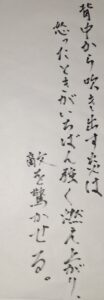 背中から吹き出す炎は
怒ったときがいちばん強く燃え上がり、
敵を驚かせる。